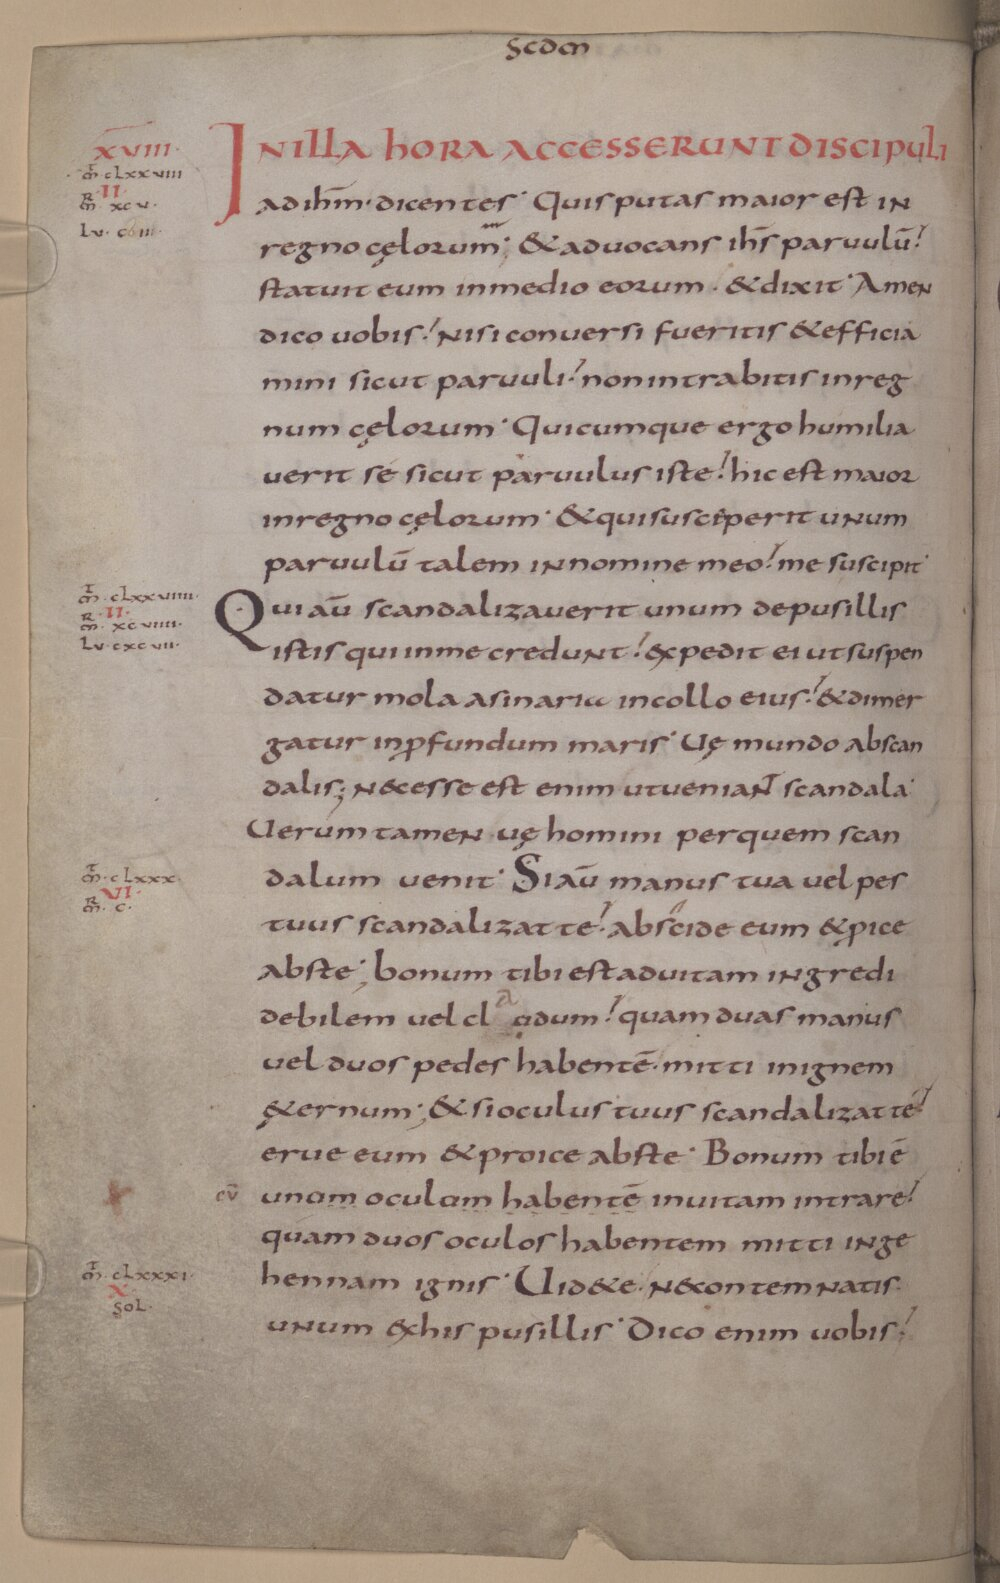 Scdm
XVIII·
IN ILLA HORA ACCESSERUNT DISCIPULI
m̄ · cLxxviiii
II
R m̄ · xcv ·
ad ihm̄ · dicentes · Quis putas maior est in
Lu · cviii ·
regno cęlorum · & advocans ihs̄ parvulū ·
statuit eum in medio eorum · & dixit · Amen
dico vobis · nisi conversi fueritis & efficia
mini sicut parvuli · non intrabitis in reg
num cęlorum · Quicumque ergo humilia
verit se sicut parvulus iste · hic est maior
in regno cęlorum · & qui susceperit unum
parvulū talem in nomine meo · me suscipit ·
m̄ · cLxxviiii ·
II
R m̄ · xcviiii ·
Qui aū scandalizaverit unum de pusillis
Lu · cxcvii ·
istis qui in me credunt · expedit ei ut suspen
datur mola asinaria in collo eius · & dimer
gatur in ꝓfundum maris · Vę mundo ab scan
dalis ; necesse est enim ut veniaNT scandala ·
Verum tamen vę homini per quem scan
m̄ · cLxxx ·
VI
R m̄ · c ·
dalum venit · Si aū manus tua vel pes
tuus scandalizat te · abscide eum & ꝓice
abs te ; bonum tibi est ad vitam ingredi
debilem vel cladum · quam duas manus
vel duos pedes habentē · mitti in ignem
ęternum ; & si oculus tuus scandalizat te ·
erue eum & proice abs te · Bonum tibi ē
cū unam oculam habentē in vitam intrare ·
quam duos oculos habentem mitti in ge
m̄ · cLxxxi ·
X
SoL ·
hennam ignis · Vid&e · ne contemnatis ·
unum ex his pusillis · Dico enim vobis ·